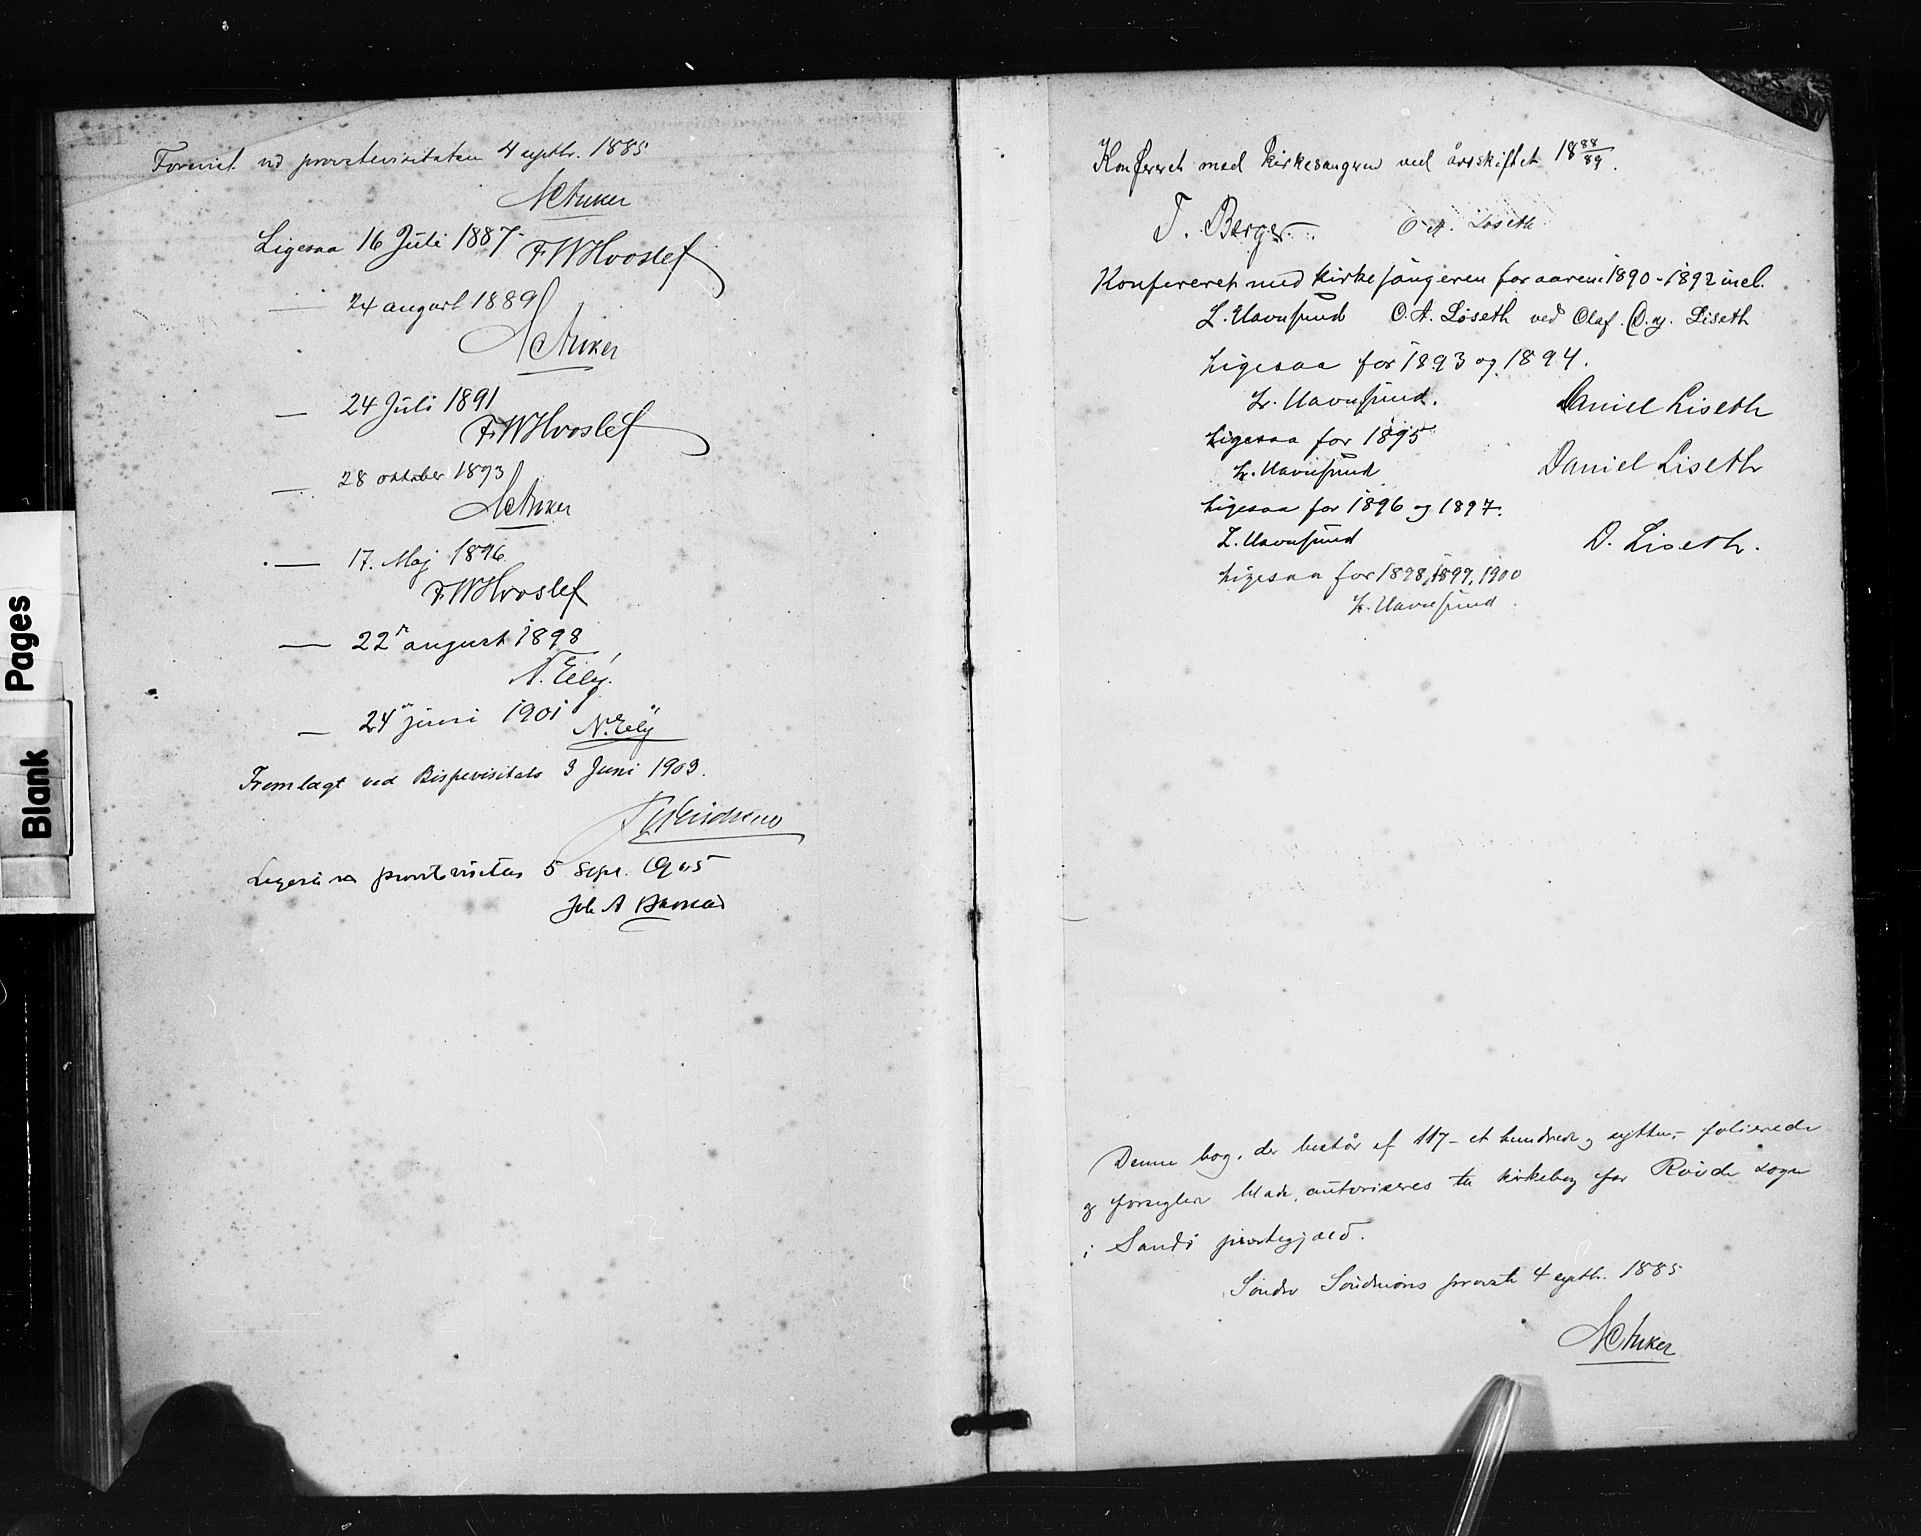 Forevist ved provstevisitatsen 4 septbr. 1885
NC Anker
Ligesaa 16 Juli 1887
F.W. Hvoslef
— 24 august 1889
NC Anker
— 24 Juli 1891
F.W. Hvoslef
— 28 oktober 1893
NC Anker
— 17. Maj 1896
F.W. Hvoslef
— 22 august 1898
N.
— 24 juni 1901
N.
Fremlagt ved Bispevisitats 3 Juni 1903.
provstevisitas 5 Sept. 1905
Joh A
Konfereret med kirkesangeren ved årsskiftet 18 88/89.
T. Berge O A. Løseth
Konfereret med kirkesangeren for aarene 1890-1892 incl.
L. Havnsund O. A. Løseth ved Olaf. Liseth
Ligesaa for 1893 og 1894.
L. Havnsund. Daniel Liseth
Ligesaa for 1895
L. Havnsund Daniel Liseth
Ligesaa for 1896 og 1897.
L. Havnsund D. Liseth.
Ligesaa for 1898, 1899, 1900
L. Havnsund
Denne bog, der består af 117 - et hundrede og sytten - folierede
og forseglede blade, autoriseres til kirkebog for Røvde sogn
i Sandø præstegjæld.
Søndre Søndmørs provsti 4 septbr. 1885
NC Anker
Blank Pages